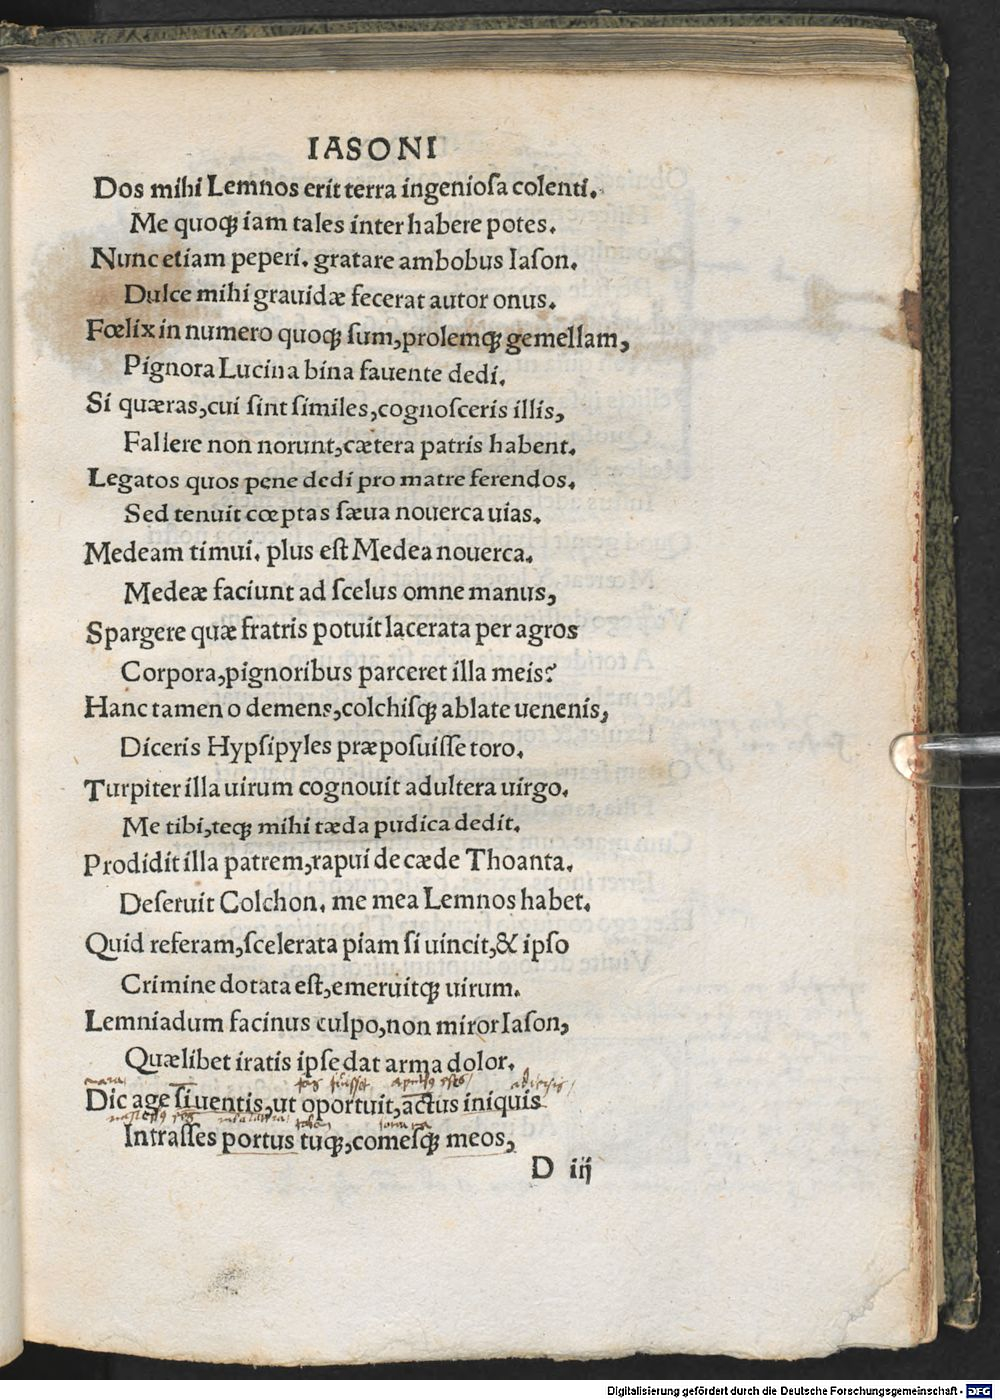 IASONI
Dos mihi Lemnos erit terra ingeniosa colenti.
Me quoqꝫ iam tales inter habere potes.
Nunc etiam peperi. gratare ambobus Iason.
Dulce mihi grauidæ fecerat autor onus.
Fœlix in numero quoqꝫ sum, prolemqꝫ gemellam,
Pignora Lucina bina fauente dedi.
Si quæras, cui sint similes, cognosceris illis,
Fallere non norunt, cætera patris habent.
Legatos quos pene dedi pro matre ferendos.
Sed tenuit cœptas sæua nouerca uias.
Medeam timui. plus est Medea nouerca.
Medeæ faciunt ad scelus omne manus,
Spargere quæ fratris potuit lacerata per agros
Corpora, pignoribus parceret illa meis?
Hanc tamen o demens, colchisqꝫ ablate uenenis,
Diceris Hypsipyles præposuisse toro.
Turpiter illa uirum cognouit adultera uirgo.
Me tibi, teqꝫ mihi tæda pudica dedit.
Prodidit illa patrem, rapui de cæde Thoanta.
Deseruit Colchon. me mea Lemnos habet.
Quid referam, scelerata piam si uincit, & ipso
Crimine dotata est, emeruitqꝫ uirum.
Lemniadum facinus culpo, non miror Iason,
Quælibet iratis ipse dat arma dolor.
Dic age si uentis, ut oportuit, actus iniquis
Intrasses portus tuqꝫ, comesqꝫ meos,
D iij
Digitalisierung gefördert durch die Deutsche Forschungsgemeinschaft - DFG